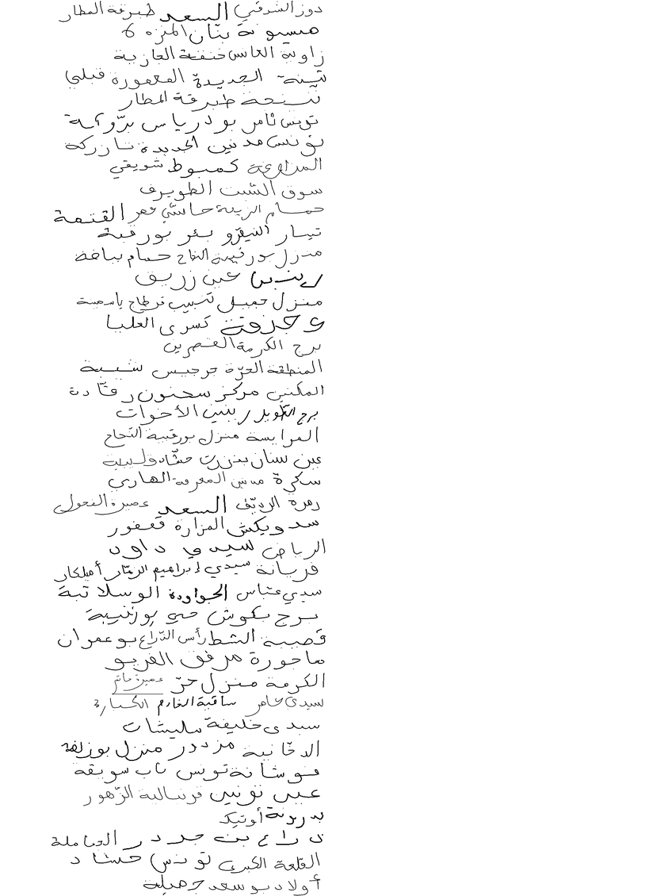 دوز الشرقي السعد طبرقة المطار
ميسيونة بنان المنزه 6
زاوية العابس خنقة الغازية
تبينة الجديدة المعمورة قبلي
شيحة طبرقة المطار
تونس ثامر بودرياس برّوكة
يونس مدنين الجديدة تازركة
المرازيق كمبوط شويقي
سوق السبت الطويرف
حمام الزريبة حاسي عمر القتمة
تيبار النيفرو بئر بورقبة
منزل بورقيبة النجاح حمام بياضة
عين زريق
منزل جميل تبسيب قرطاج ياسمينة
وحزقة كسرى العليا
برج الكرمة القصرين
المنطقة الحرّة جرجيس شبيبة
المكنين مركز سحنون رقّادة
برج الطويل رنين الأخوات
الفرايسة منزل بورقيبة النجاح
عين سنان بنزرت حشّاد قليبية
سكرة مدنين المعرفة الهاربي
زهرة الرديّف السعد عميرة الفحول
سد ويكش المزارة قعفور
الرياض سيدي داود
فريانة سيدي إبراهيم الزهّار أميلكار
سيدي عبّاس الجواودة الوسلاتية
برج بكوش حي بوزغيبة
قصيبة الشط رأس الذّراع بوعمران
ماجورة مرفق الغريو
الكرمة منزل حرّ
سيدي عامر ساقية الخادم
سيدي خليفة مليشات
الدخّانية مزدور منزل بوزلفة
فوشانة تونس باب سويقة
عين تونين فرسالية الزّهور
بدرونة أوتيك
ذراع بن جدر العاملة
القلعة الكبرى تونس حشّاد
أولاد بوسعد جميلة